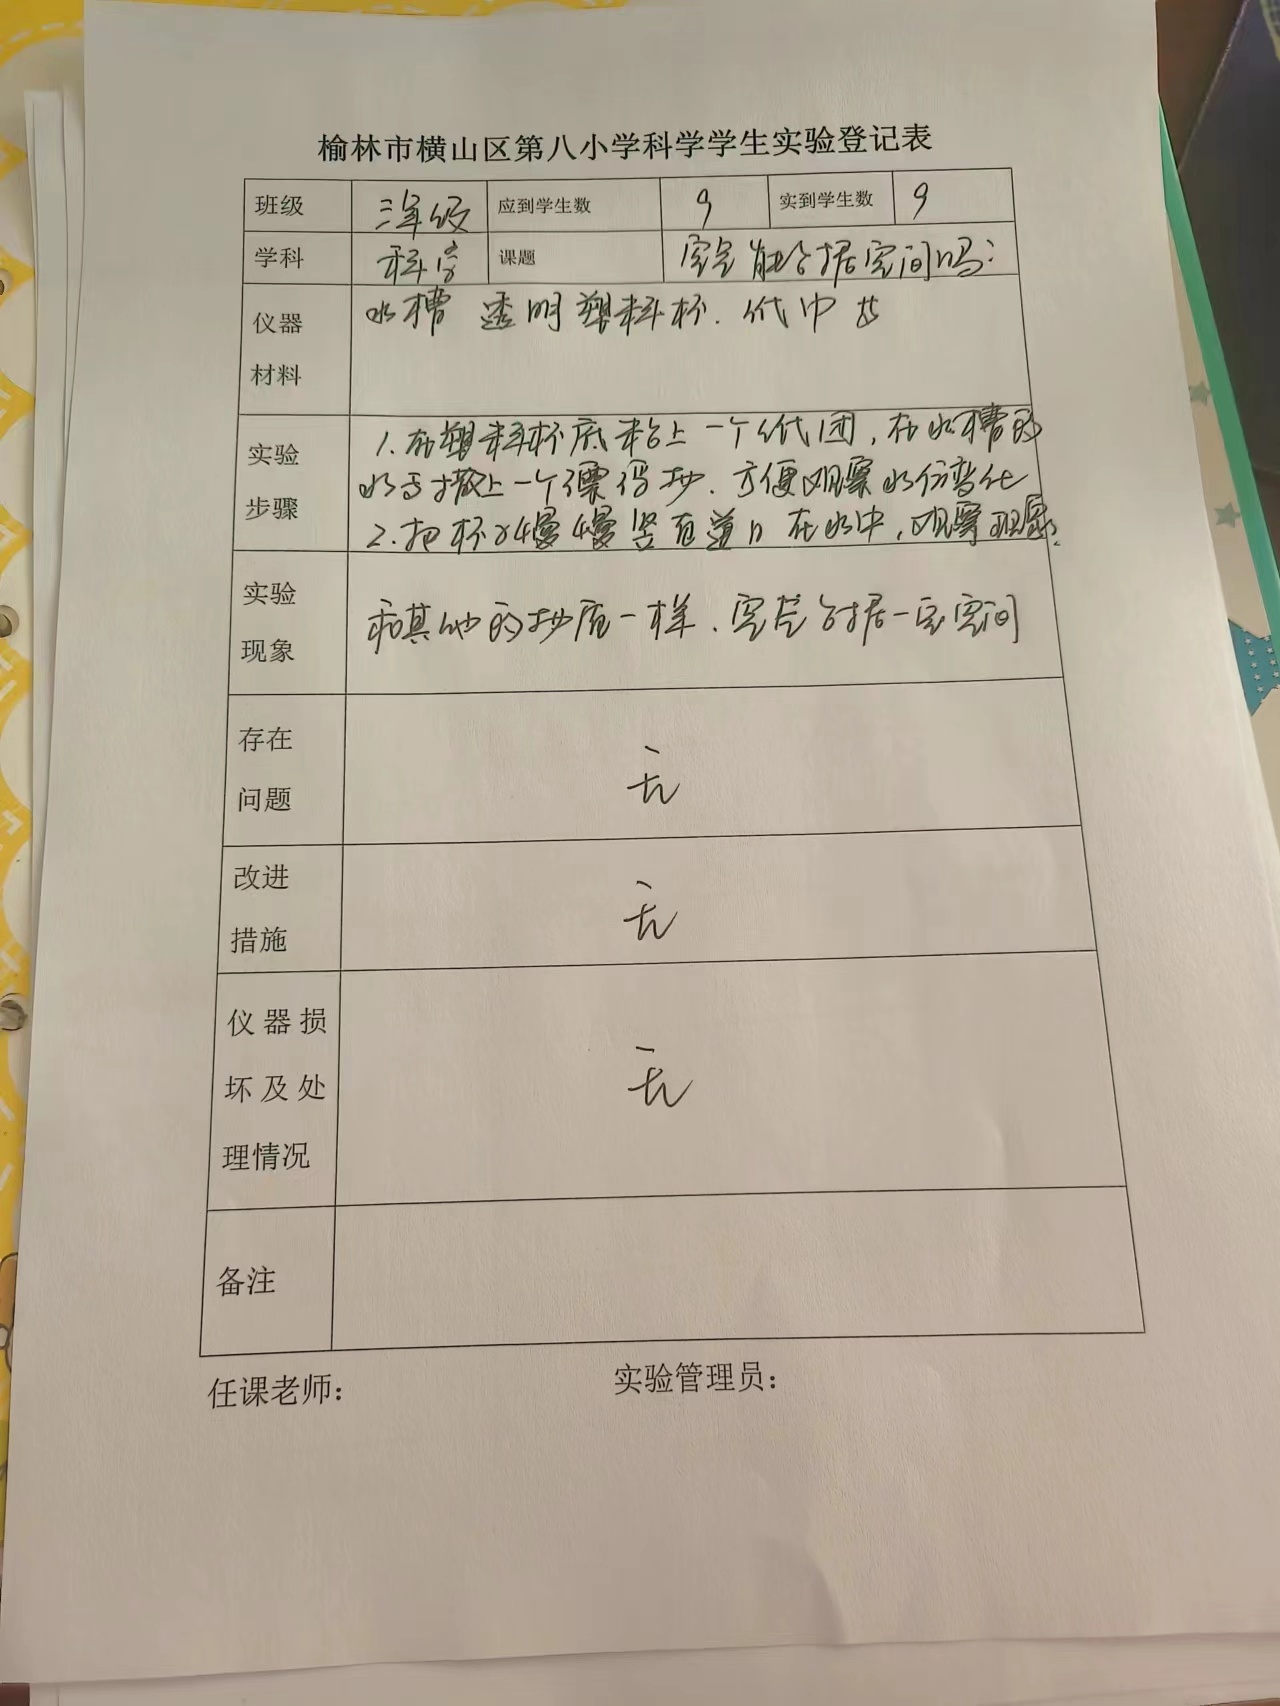 榆林市横山区第八小学科学学生实验登记表
班级 三年级 应到学生数 9 实到学生数 9
学科 科学 课题 空气能占据空间吗?
仪器
材料
水槽 透明塑料杯.
实验
步骤
1.在塑料杯底粘上一个纸团,在水槽的
水面放上一个漂浮物.方便观察水位变化
2.把杯子慢慢竖直 在水中,观察现象.
实验
现象
和其他的 一样.空气占据一定空间
存在
问题
无
改进
措施
无
仪器损
坏及处
理情况
无
备注
任课老师: 实验管理员: